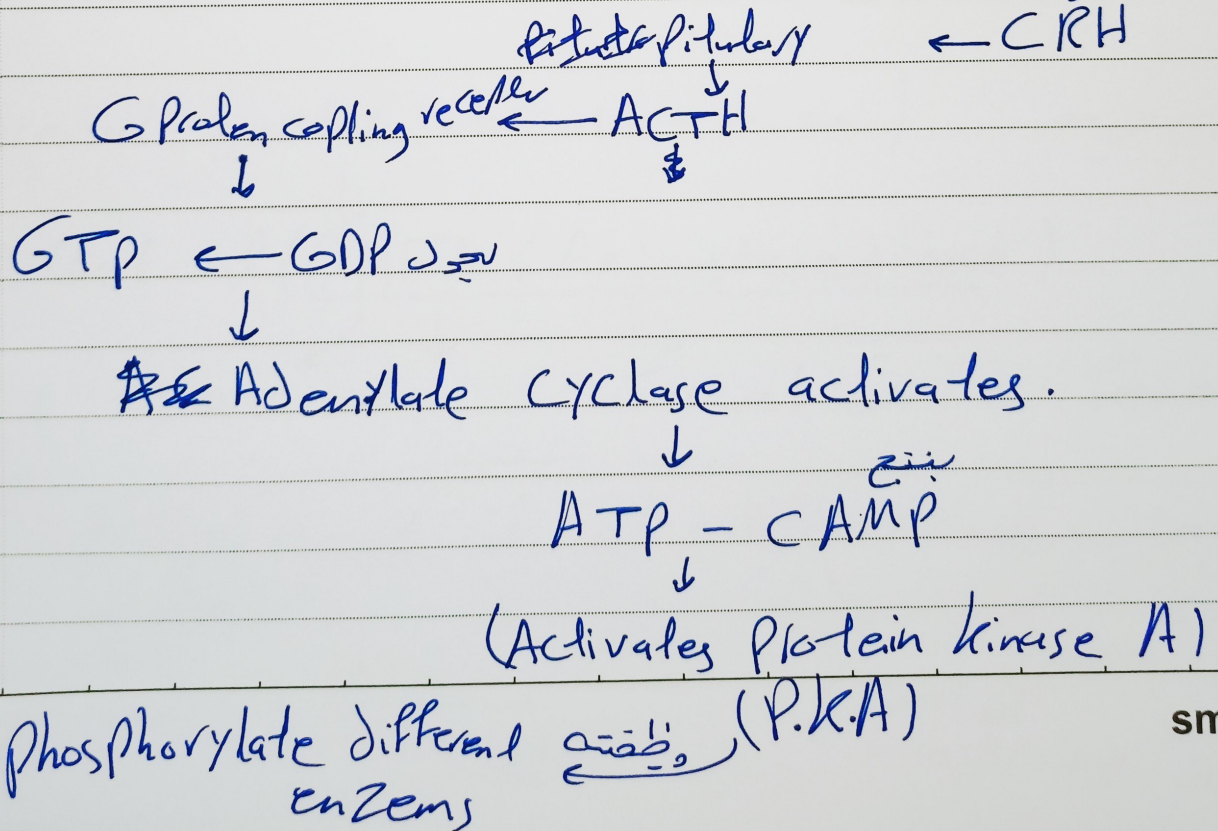 Pitulary ← CRH
↓
G Proten copling recepter ← ACTH
↓
GTP ← GDP بحول
↓
Adenylate cyclase activates.
↓
بنتج
ATP - CAMP
↓
(Activates Protein kinase A)
(P.K.A)
phosphorylate different وظيفته
enzems
sm